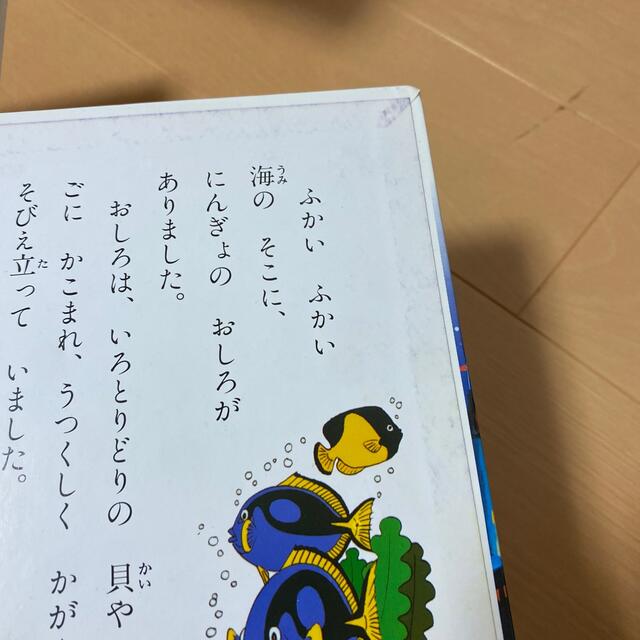 ふかい ふかい
海の そこに、
にんぎょの おしろが
ありました。
おしろは、いろとりどりの 貝や
ごに かこまれ、うつくしく かが
そびえ立って いました。
うみ
かい
た